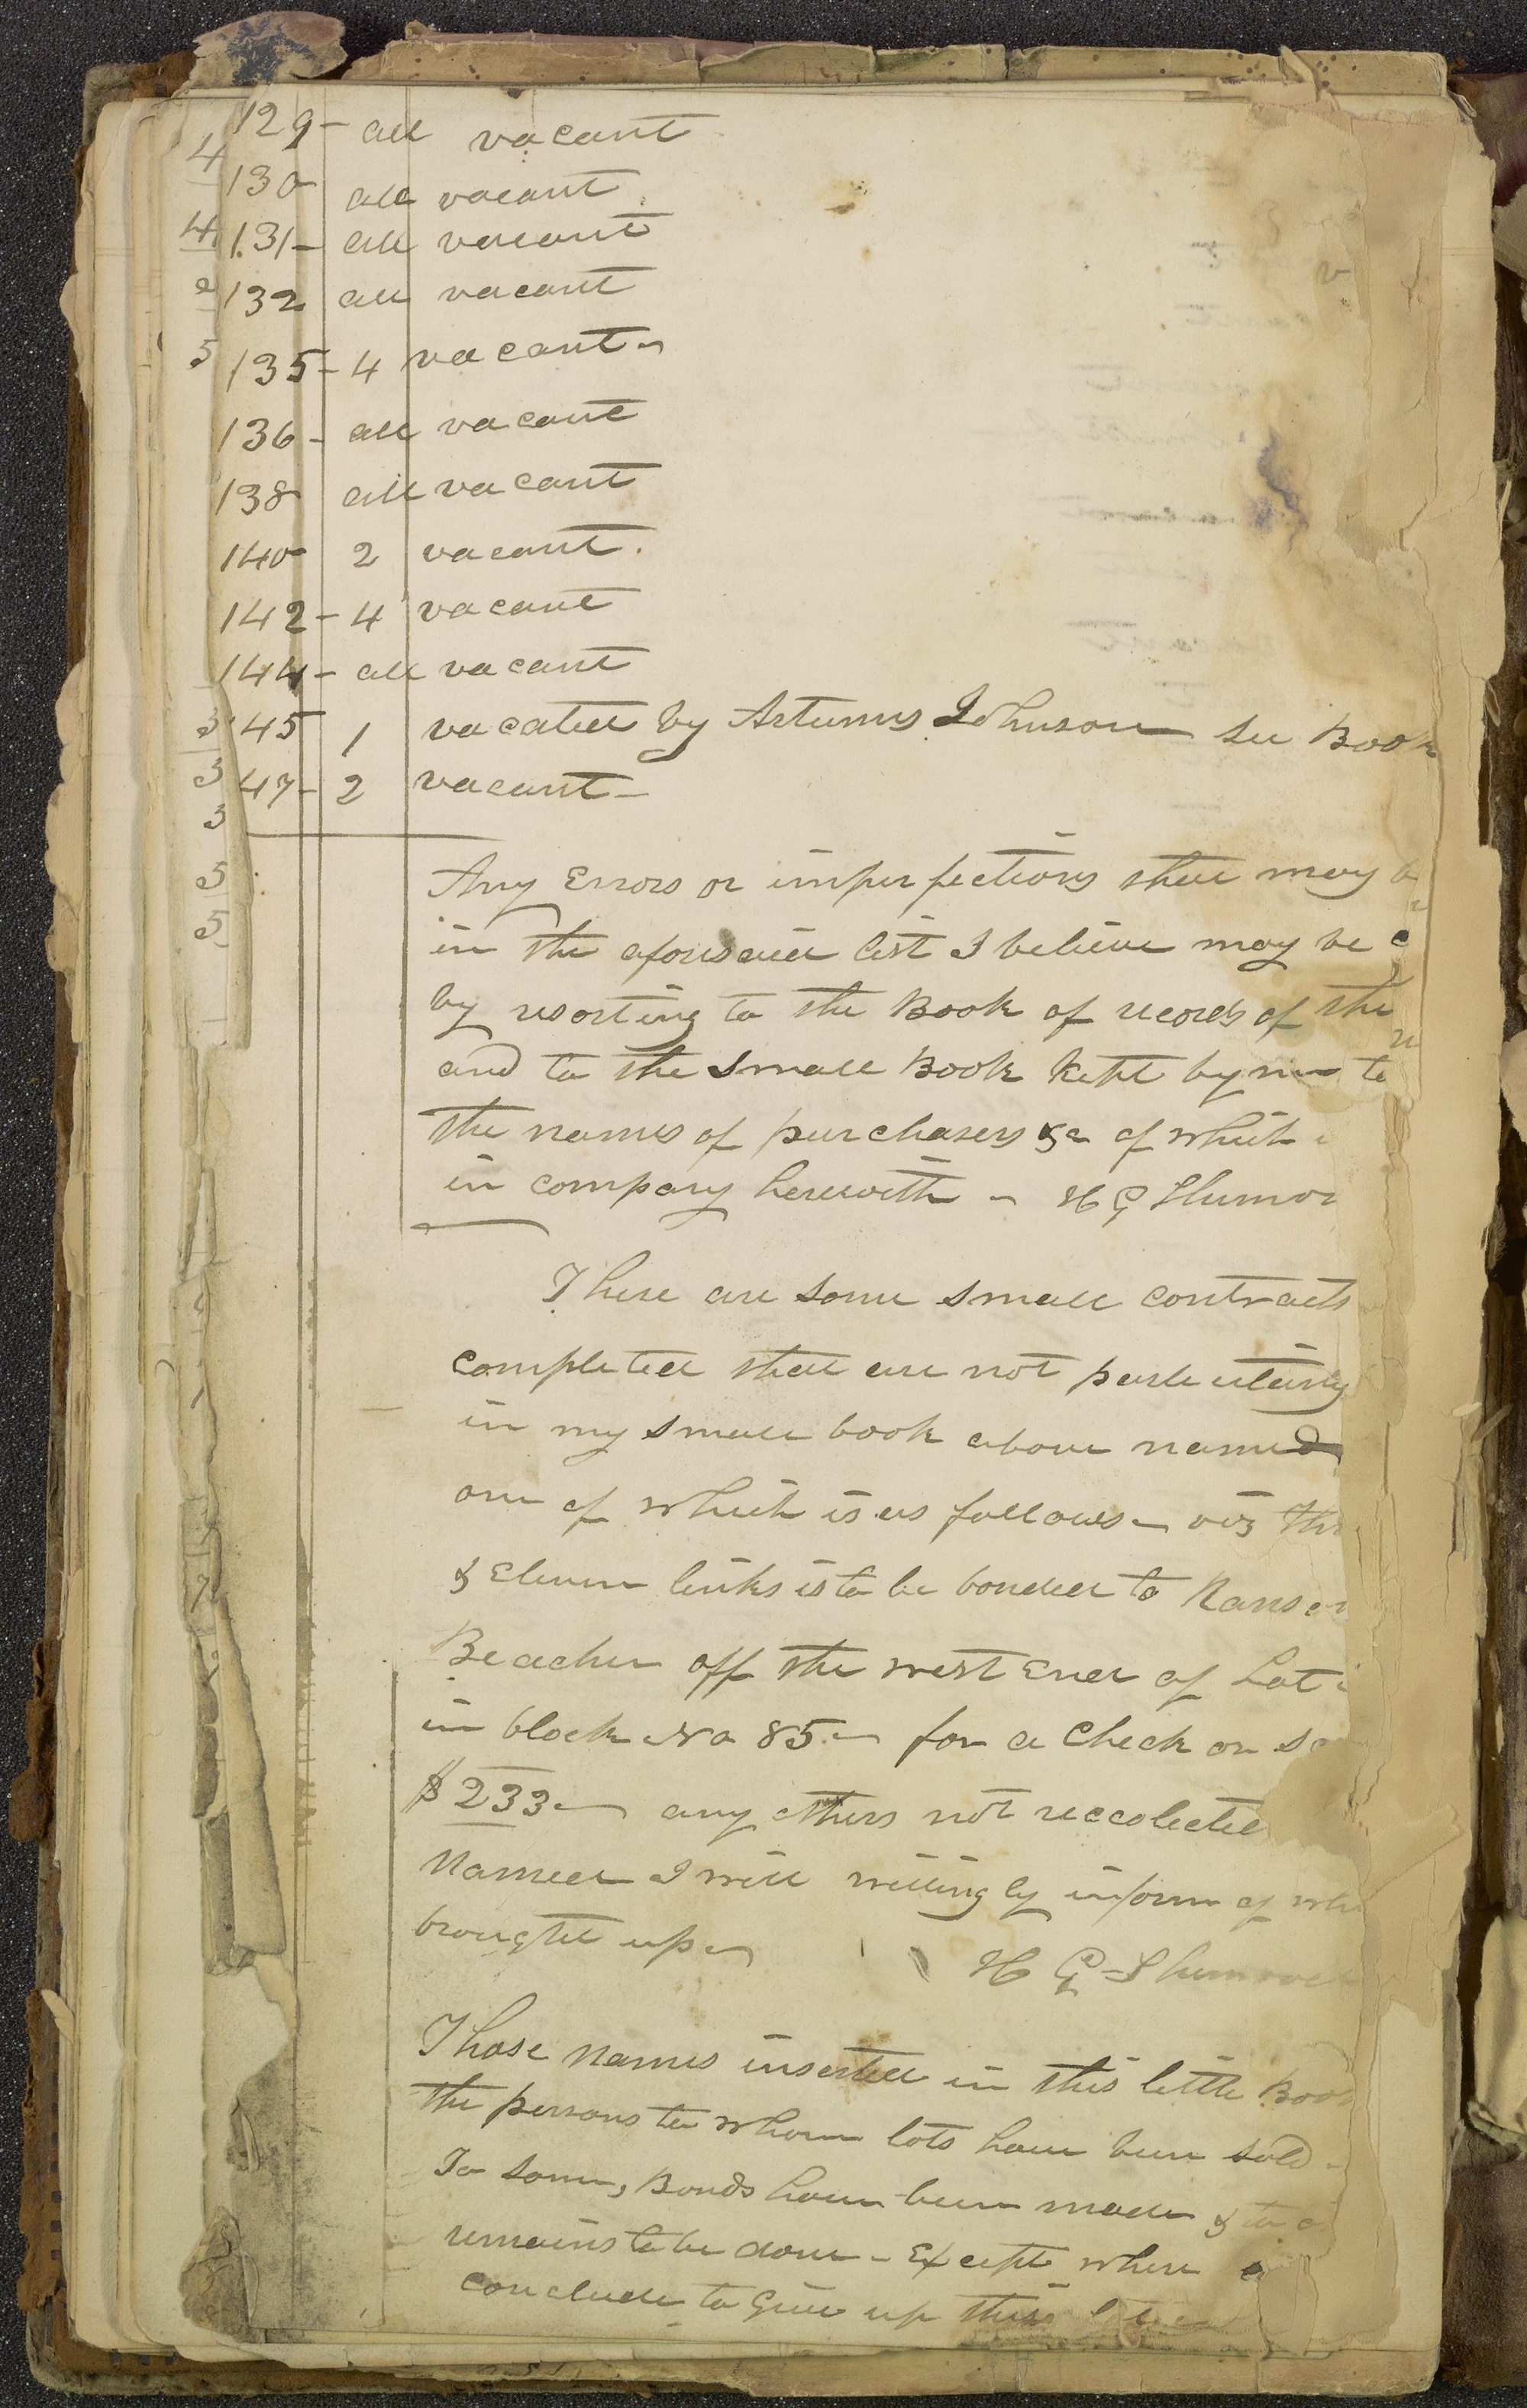 129 - all vacant
4
130 all vacant
4 131 - all vacant
2 132 all vacant
5 135 - 4 vacant -
136 - all vacant
138 all vacant
140 2 vacant.
142 - 4 vacant
144 - all vacant
3 45 1 vacated by Artumus Johnson See Book
3 47 - 2 vacant -
3
5
5
Any Errors or imperfections that may b
in the aforesaid list I believe may be c
by resorting to the Book of records of the
and to the small Book kept by me to
the names of purchasers &c of which
in company herewith - H G Sherwoo
There are some small contracts
completed that are not particularly
in my small book above named
one of which is as follows - viz
& Eleven links is to be bonded to Ransom
Beacher off the west End of Lot
in block No 85 - for a Check on
$233 - any others not reccolected
Named I will willingly inform of
brought up - H G Sherwood
Those names inserted in this little Book
the persons to whom lots have been sold -
To some, Bonds have been made & to
remains to be done - Except where
conclude to give up their